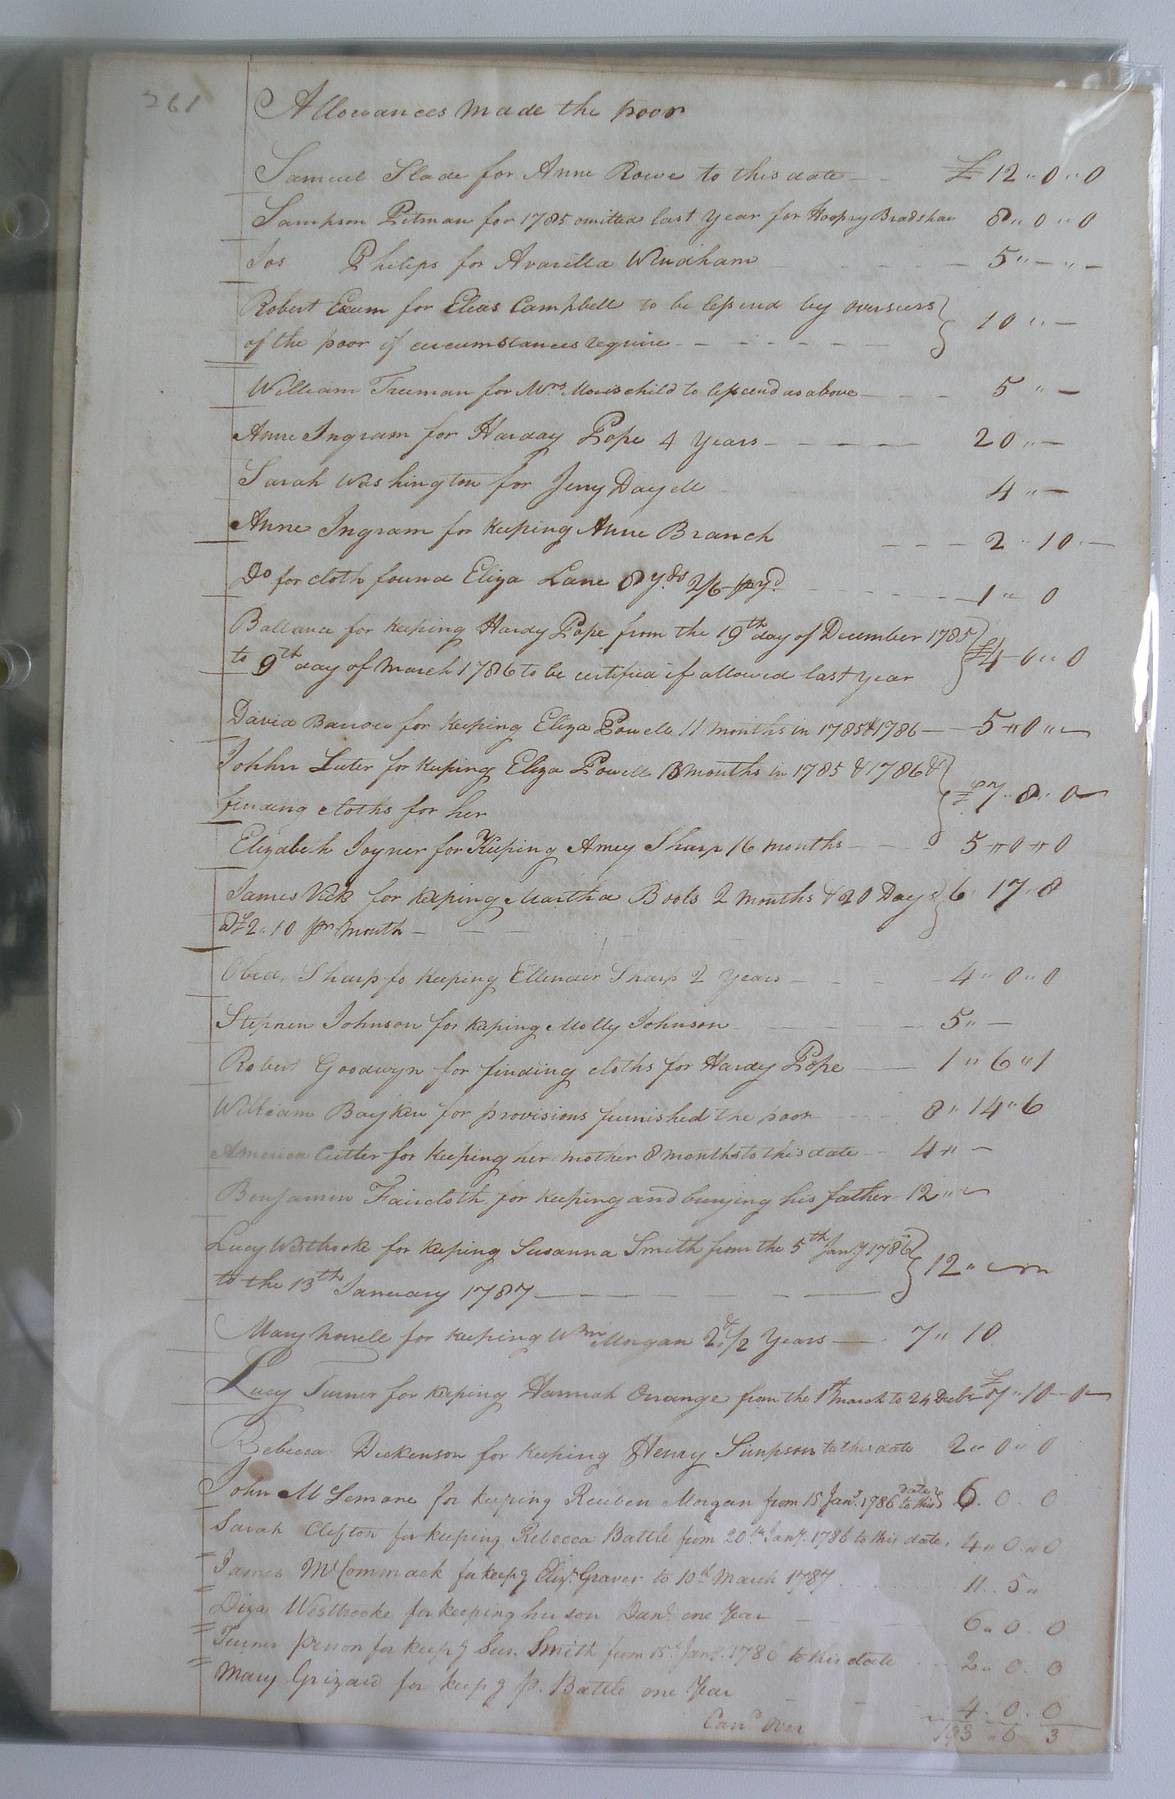 261
Allowances made the poor
Samuel Slade for Anne Rowe to this date £ 12 " 0 " 0
Sampson Pitman for 1785 omitted last year for keeping Bradshaw 8 " 0 " 0
Jos Philips for Avarilla Windham 5 " — " —
Robert Exum for Elias Campbell to be lessend by overseers
of the poor if circumstances require 10 " —
William Freeman for Mrs child to lessend as above 5 " —
Anne Ingram for Harday Pope 4 Years 20 " —
Sarah Washington for Jerry Dayell 4 " —
Anne Ingram for keeping Anne Branch 2 " 10 —
Do for cloth found Eliza Lane 8 yds 2/6 pr yd 1 " 0
Ballance for keeping Hardy Pope from the 19th day of December 1785
to 9th day of March 1786 to be certified if allowed last year £4 " 0 " 0
David Barrow for keeping Eliza Powell 11 months in 1785 & 1786 5 " 0 " —
Johhn Luter for keeping Eliza Powell 13 months in 1785 & 1786 &
finding cloths for her £7 " 8 " 0
Elizabeth Joyner for Keeping Amey Sharp 16 months 5 " 0 " 0
James Vick for keeping Martha Boots 2 months & 20 Days 6 " 17 " 8
@ £2 " 10 pr month
Obed. Sharp fo keeping Ellender Sharp 2 years 4 " 0 " 0
Stephen Johnson for keping Molly Johnson 5 " —
Robert Goodwyn for finding cloths for Hardy Pope 1 " 6 " 1
William Boyken for provisions furnished the poor 8 " 14 " 6
America Cutler for keeping her mother 8 months to this date 4 " —
Benjamin Faircloth for keeping and burying his father 12 " —
Lucy Westbrooke for keeping Susanna Smith from the 5th Jany 1786
to the 13th January 1787 12 " —
Mary Novell for keeping Wm Morgan 2 & 1/2 Years 7 " 10
Lucy Turner for keping Hannah Orrange from the 1st march to 24 Decbr £7 " 10 — 0
Rebecca Dickenson for keeping Henry Simpson to this date 2 " 0 " 0
John McLemore for keeping Reuben Morgan from 15 Jany. 1786 to this date 6 . 0 . 0
Sarah Clifton for keeping Rebecca Battle from 20th Jany. 1786 to this date 4 " 0 " 0
James McCommack for keepg Eliz. Graver to 10th March 1787 11 . 5 "
Diza Westbrooke for keeping her son Danl. one Year 6 " 0 . 0
Turner person for keepg Sus. Smith from 15th Jany. 1786 to this date 2 " 0 . 0
Mary Grizard for keepg P. Battle one Year
4 . 0 . 0
Card over 193 " 6 3